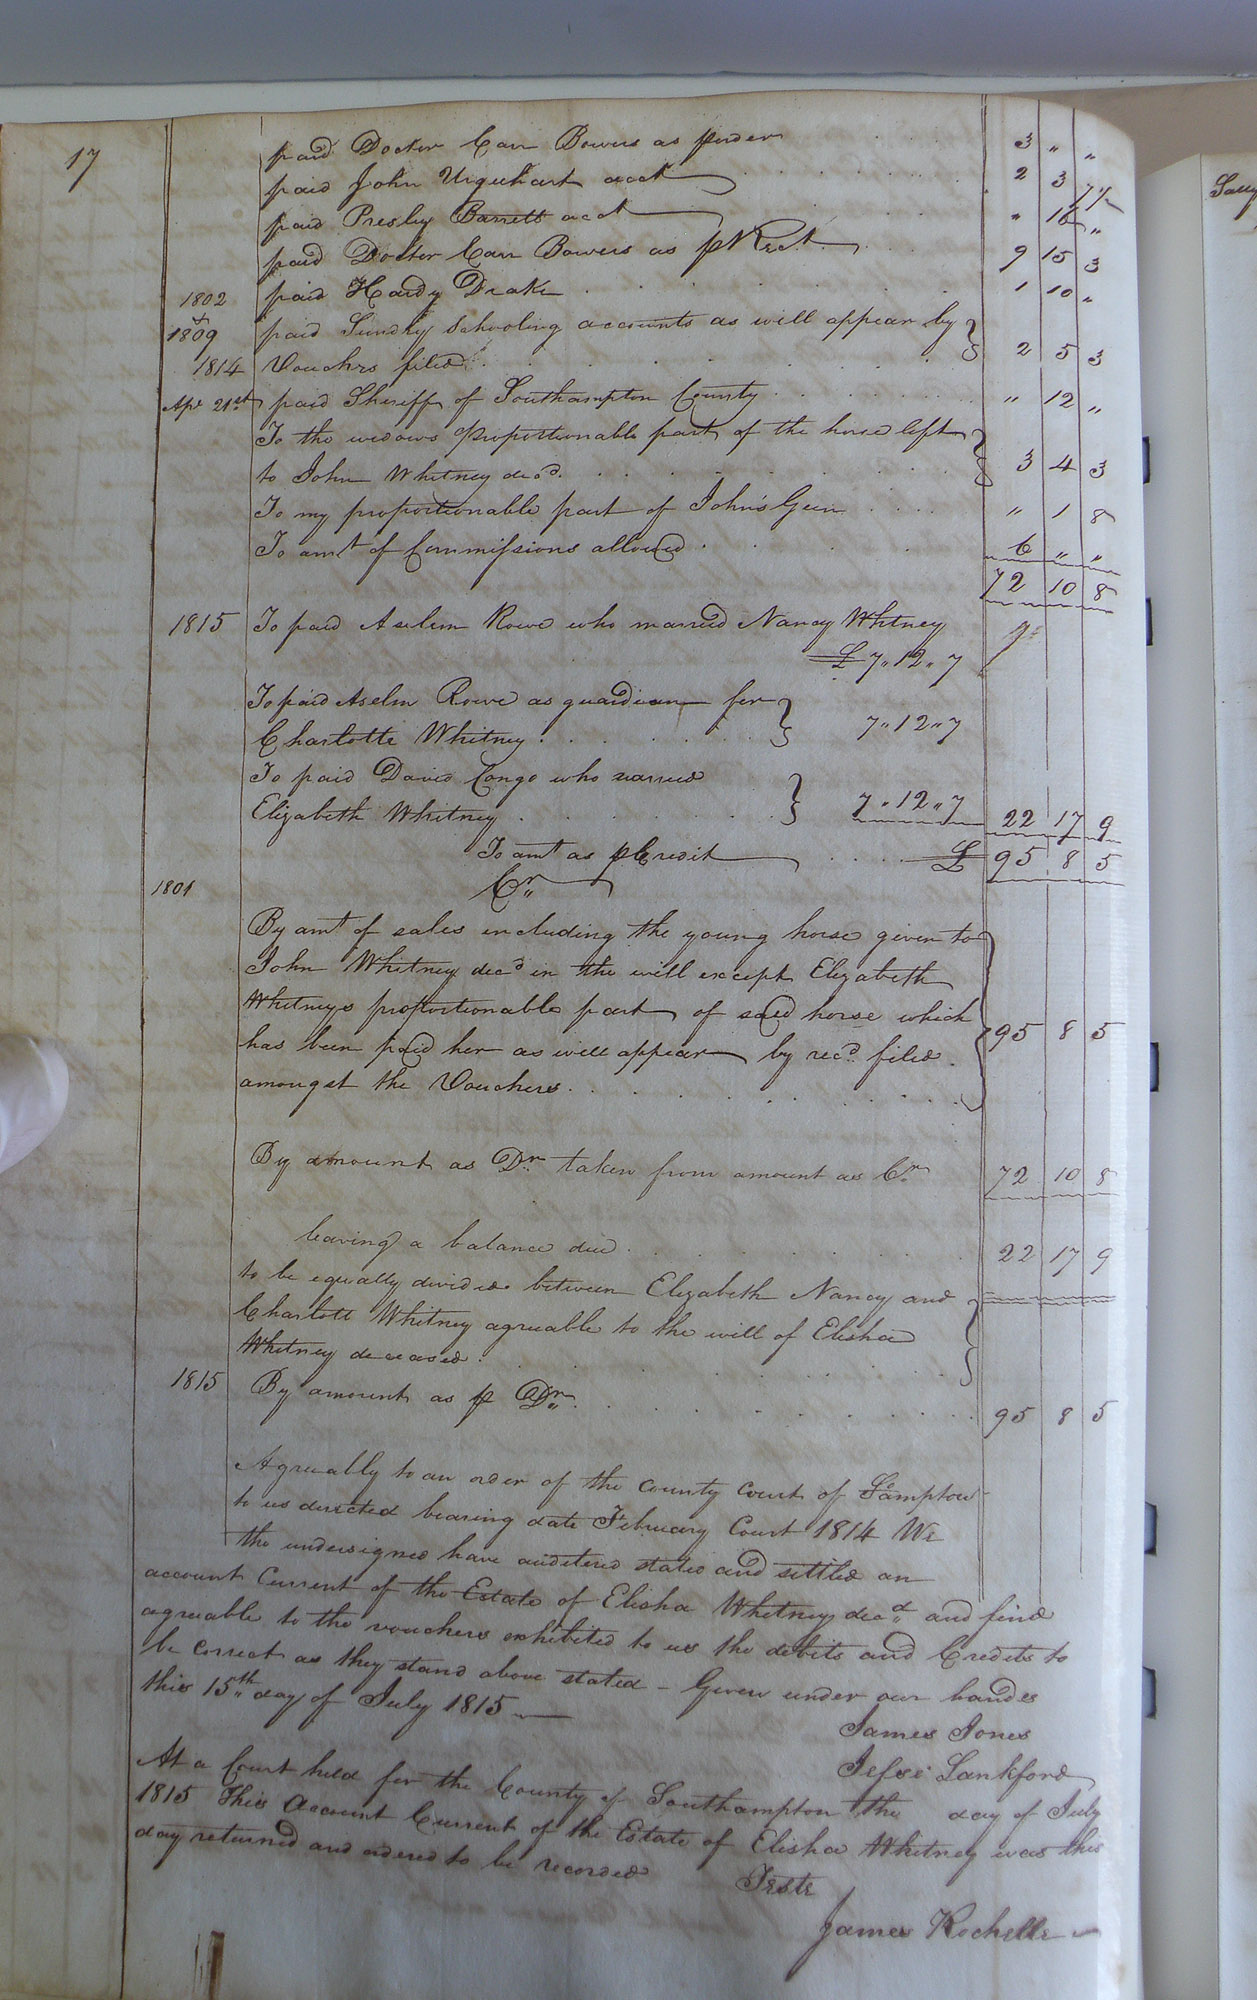 17
paid Doctor Carr Bowers as per der 3 " "
paid John Urquhart acct 2 3 7½
paid Presley Barrett acct " 16 "
paid Doctor Carr Bowers as p Rect 9 15 3
1802 paid Hardy Drake 1 10 "
&
1809 paid Sundry Schooling accounts as will appear by
1814 Vouchrs filed 2 5 3
Apl 21st paid Sheriff of Southampton County " 12 "
To the widows proportionable part of the horse left
to John Whitney decd. 3 4 3
To my proportionable part of John's Gun " 1 8
To amt of Commissions allowed 6 " "
72 10 8
1815 To paid Aselm Rowe who married Nancy Whitney
£ 7 " 12 " 7
To paid Aselm Rowe as guardian for
Charlotte Whitney 7 " 12 " 7
To paid David Congo who married
Elizabeth Whitney 7 " 12 " 7 22 17 9
To amt as p Credit £ 95 8 5
1801 Cr
By amt of sales including the young horse given to
John Whitney decd in the will except Elizabeth
Whitneys proportionable part of said horse which 95 8 5
has been paid her as will appear by recd. filed
amongst the Vouchers
By amount as Dr taken from amount as Cr 72 10 8
leaving a balance due 22 17 9
to be equally divided between Elizabeth Nancy and
Charlott Whitney agreuable to the will of Elisha
Whitney deceased
1815 By amount as p Dr 95 8 5
Agreuably to an order of the County Court of So ampton
to us directed bearing date February Court 1814 We
the undersigned have auditered stated and settled an
account Current of the Estate of Elisha Whitney decd and find
agreuable to the vouchers exhibited to us the debits and Credits to
be correct as they stand above stated - Given under our handes
this 15th day of July 1815
James Jones
Jesse Lankford
At a Court held for the County of Southampton the day of July
1815 This Account Current of the Estate of Elisha Whitney was this
day returned and ordered to be recorded
Teste
James Rochelle
Sally